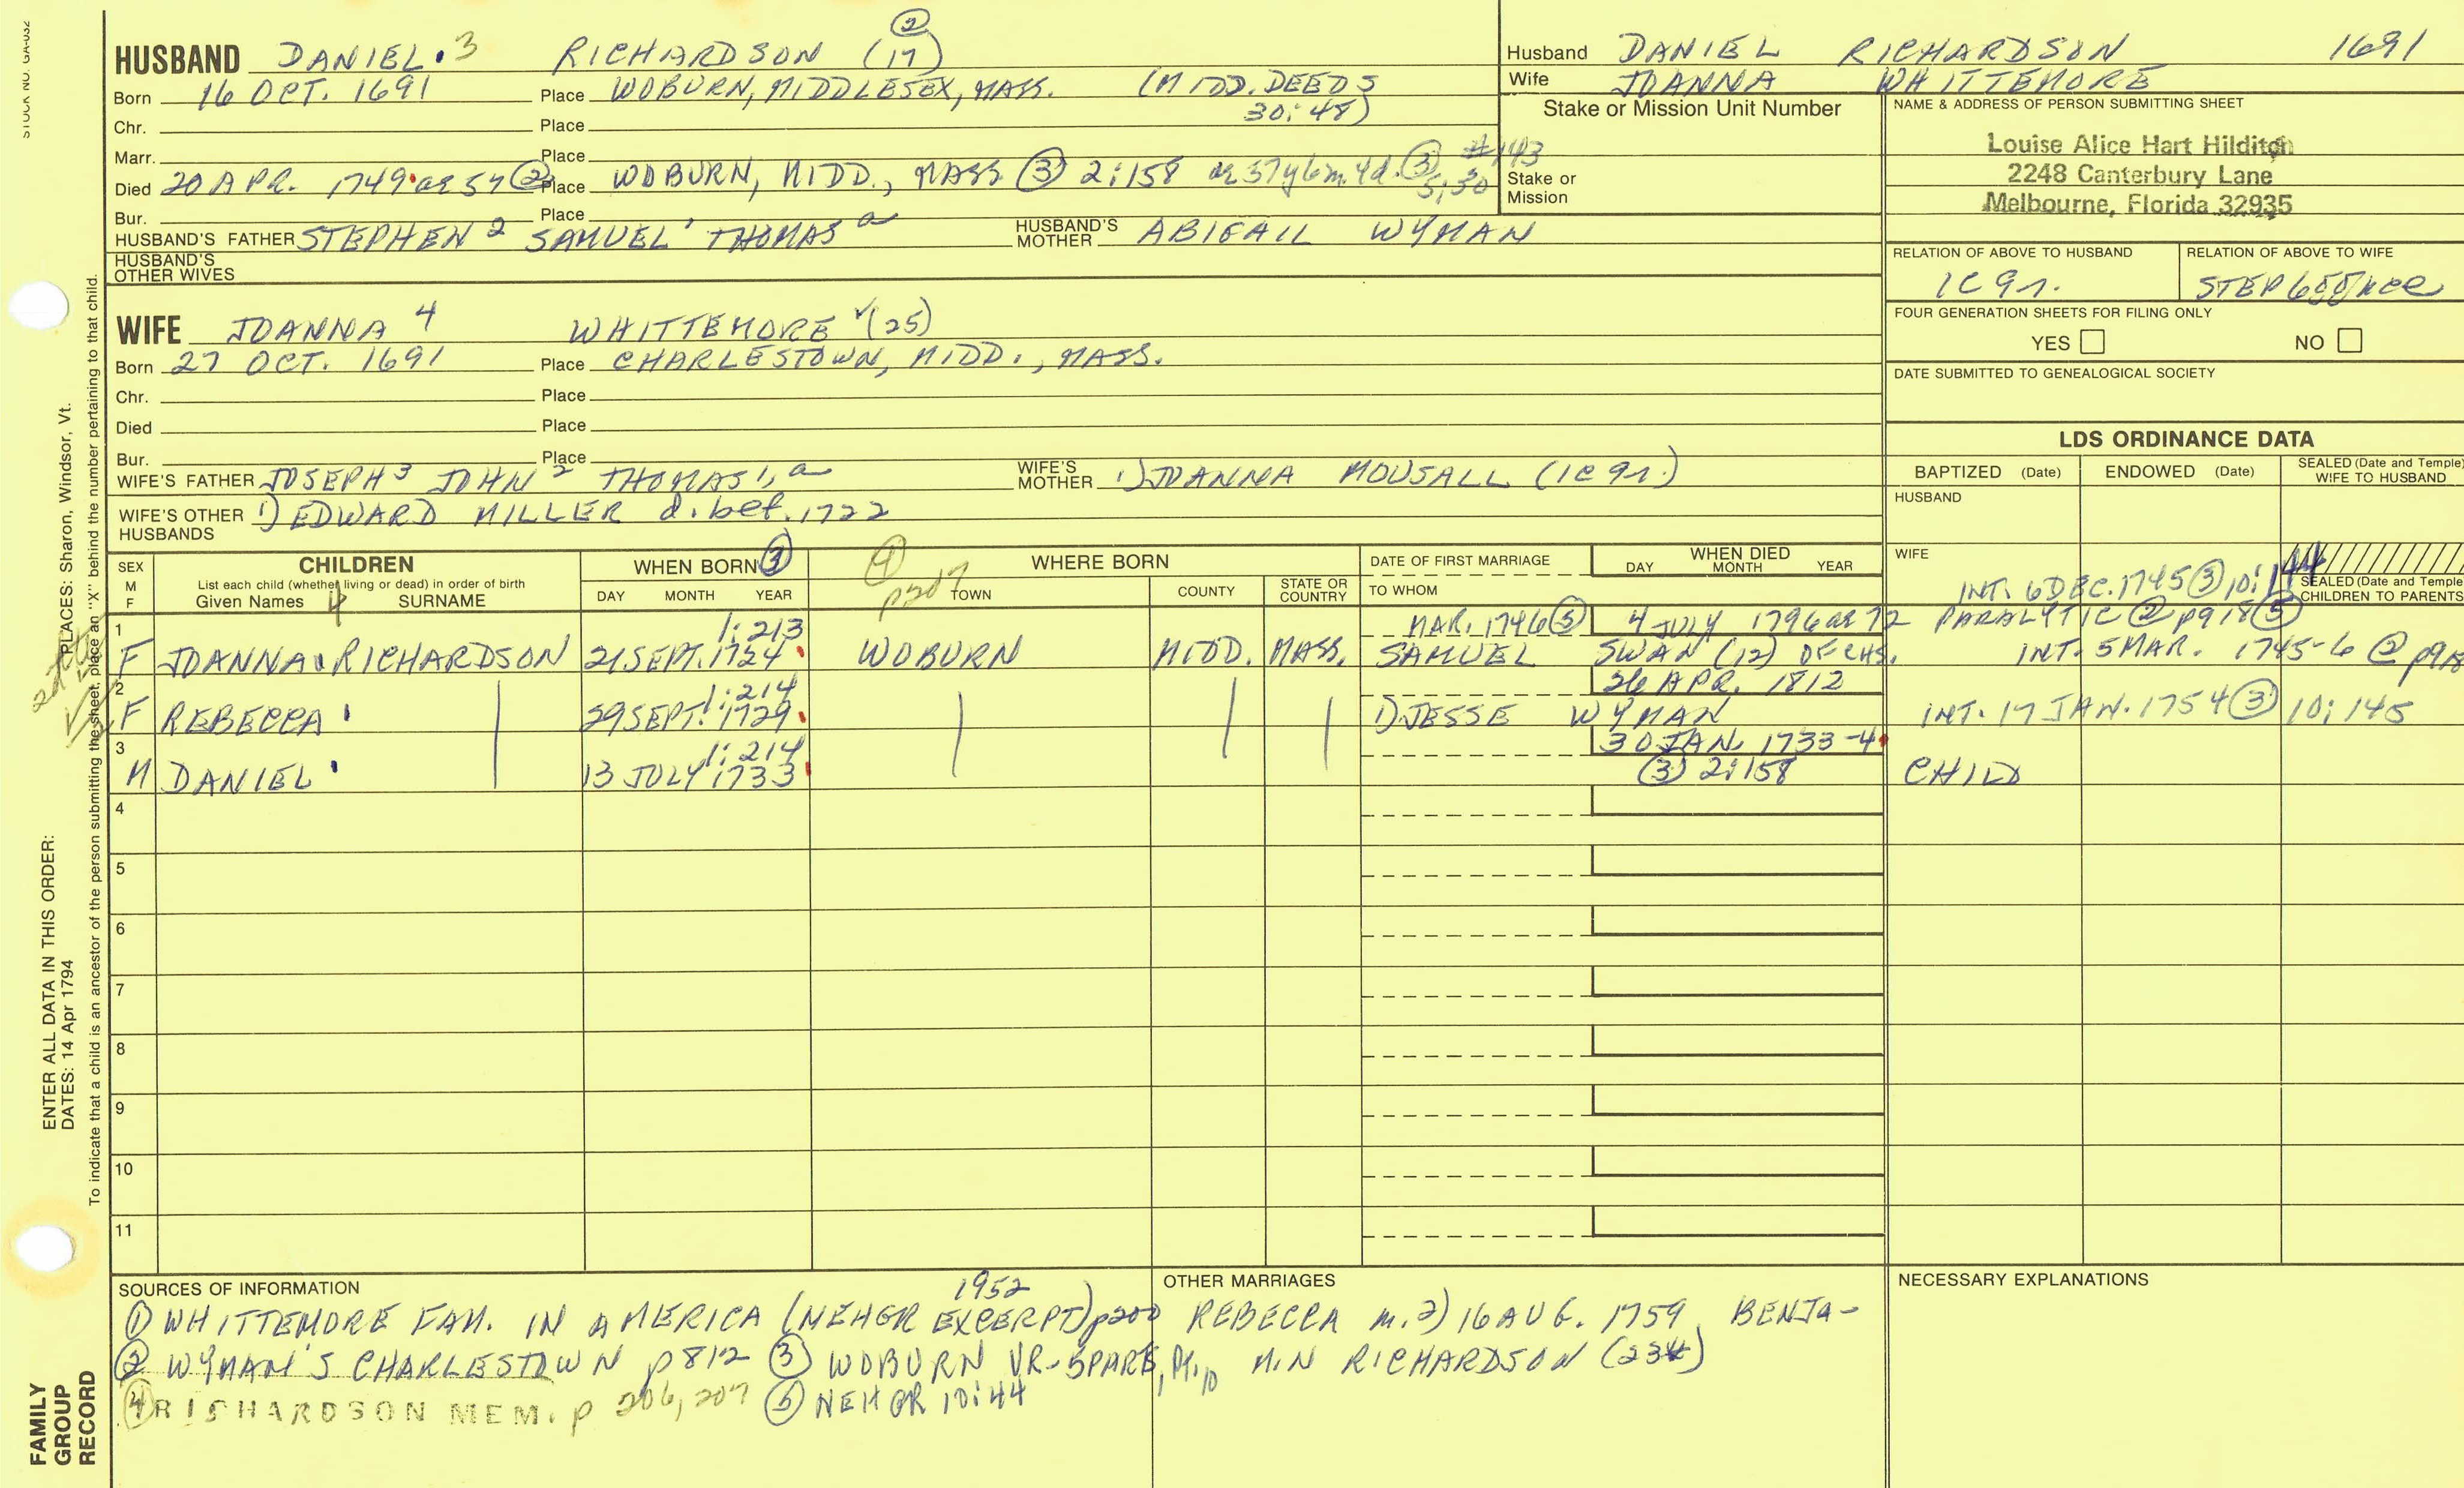 STOCK NO. GA-032
HUSBAND DANIEL 3 RICHARDSON (17) ②
Born 16 OCT. 1691 Place WOBURN, MIDDLESEX, MASS. (MIDD. DEEDS
30:48)
Chr. Place
Marr. Place
Died 20 APR. 1749 ae 57 ② Place WOBURN, MIDD., MASS ③ 2:158 ae 57y6m.4d. ③
Bur. Place
HUSBAND'S FATHER STEPHEN 2 SAMUEL 1 THOMAS a HUSBAND'S MOTHER ABIGAIL WYMAN
HUSBAND'S
OTHER WIVES
WIFE JOANNA 4 WHITTEMORE √(25)
Born 27 OCT. 1691 Place CHARLESTOWN, MIDD., MASS.
Chr. Place
Died Place
Bur. Place
WIFE'S FATHER JOSEPH 3 JOHN 2 THOMAS 1, a WIFE'S MOTHER 1) JOANNA MOUSALL (1C9r.)
WIFE'S OTHER HUSBANDS 1) EDWARD MILLER d. bef. 1722
Husband DANIEL RICHARDSON 1691
Wife JOANNA WHITTEMORE
Stake or Mission Unit Number
#143
Stake or
Mission
NAME & ADDRESS OF PERSON SUBMITTING SHEET
Louise Alice Hart Hilditch
2248 Canterbury Lane
Melbourne, Florida 32935
RELATION OF ABOVE TO HUSBAND RELATION OF ABOVE TO WIFE
1C 9r. STEP
FOUR GENERATION SHEETS FOR FILING ONLY
YES NO
DATE SUBMITTED TO GENEALOGICAL SOCIETY
LDS ORDINANCE DATA
BAPTIZED (Date) ENDOWED (Date) SEALED (Date and Temple) WIFE TO HUSBAND
HUSBAND
WIFE
SEALED (Date and Temple
CHILDREN TO PARENTS
SEX
M
F
CHILDREN
List each child (whether living or dead) in order of birth
Given Names 4 SURNAME
WHEN BORN ③
DAY MONTH YEAR
④ p207
WHERE BORN
TOWN COUNTY STATE OR COUNTRY
DATE OF FIRST MARRIAGE
TO WHOM
WHEN DIED
DAY MONTH YEAR
INT. 6 DEC. 1745 ③ 10:144
1 1:213 MAR. 1746 ⑤ 4 JULY 1796 ae 72 PARALYTIC ② p918 ⑤
F JOANNA RICHARDSON 21 SEPT. 1724 WOBURN MIDD. MASS. SAMUEL SWAN (12) OF CHS. INT. 5 MAR. 1745-6 ② p918
2 1:214 26 APR. 1812
F REBECCA 29 SEPT. 1729 1) JESSE WYMAN INT. 17 JAN. 1754 ③ 10:145
3 1:214 30 JAN. 1733-4
M DANIEL 13 JULY 1733 ③ 2:158 CHILD
4
5
6
7
8
9
10
11
SOURCES OF INFORMATION
1952
① WHITTEMORE FAM. IN AMERICA (NEHGR EXCERPT) p200
② WYMAN'S CHARLESTOWN p812 ③ WOBURN VR-5PARTS,
④ RICHARDSON MEM. p 206, 207 ⑤ NEHGR 10:44
OTHER MARRIAGES
REBECCA m. 2) 16 AUG. 1759 BENJA-
MIN RICHARDSON (234)
NECESSARY EXPLANATIONS
ENTER ALL DATA IN THIS ORDER:
DATES: 14 Apr 1794 PLACES: Sharon, Windsor, Vt.
To indicate that a child is an ancestor of the person submitting the sheet, place an "X" behind the number pertaining to that child.
FAMILY
GROUP
RECORD